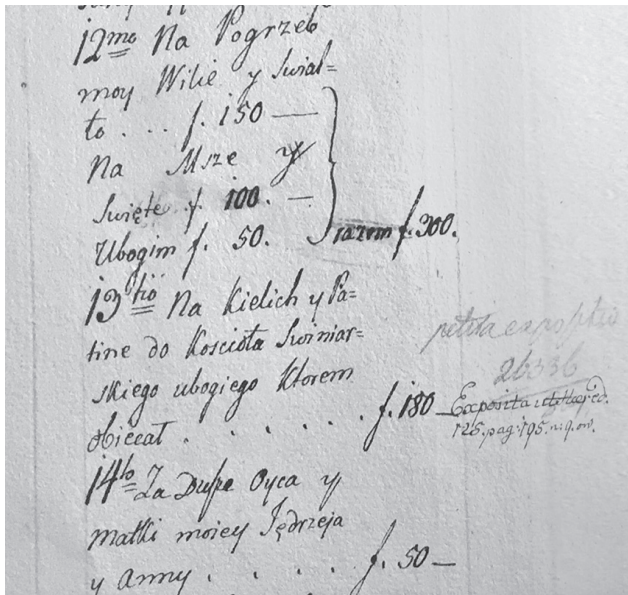 12mo Na Pogrzeb
moy Wilie y Swiat=
to . . . f. 150 —
Na Msze y
Swięte f. 100. —
Ubogim f. 50.
razem f. 300.
13tio Na Kielich y Pa=
tine do Kosciola Swiniar=
skiego ubogiego Ktorem
obiecał . . . . . f. 180
26336
Exposita
125. pag: 195. n: 9. ov.
14to Za Dusze Oyca y
matki moiey Jędrzeja
y Anny . . . . f. 50 —